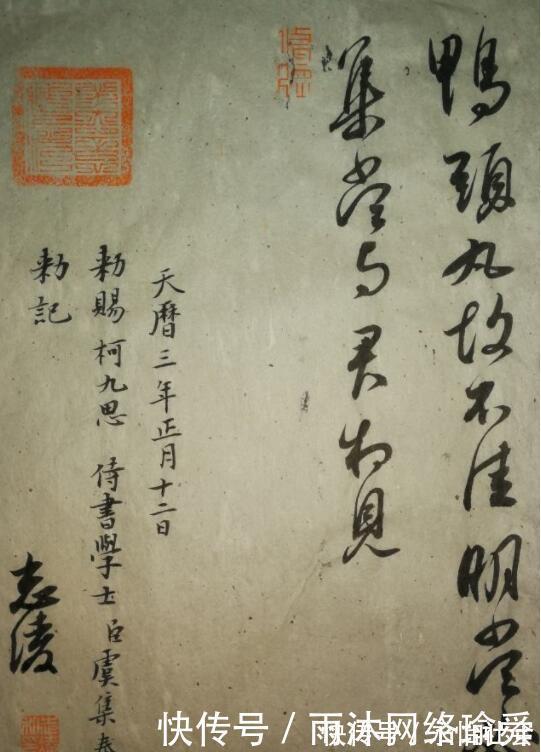 鴨頭丸故不佳明當必
集當与君相見
天曆三年正月十二日
勑賜柯九思侍書學士臣虞集奉
勑記
志凌
快传号 / 雨沐网络